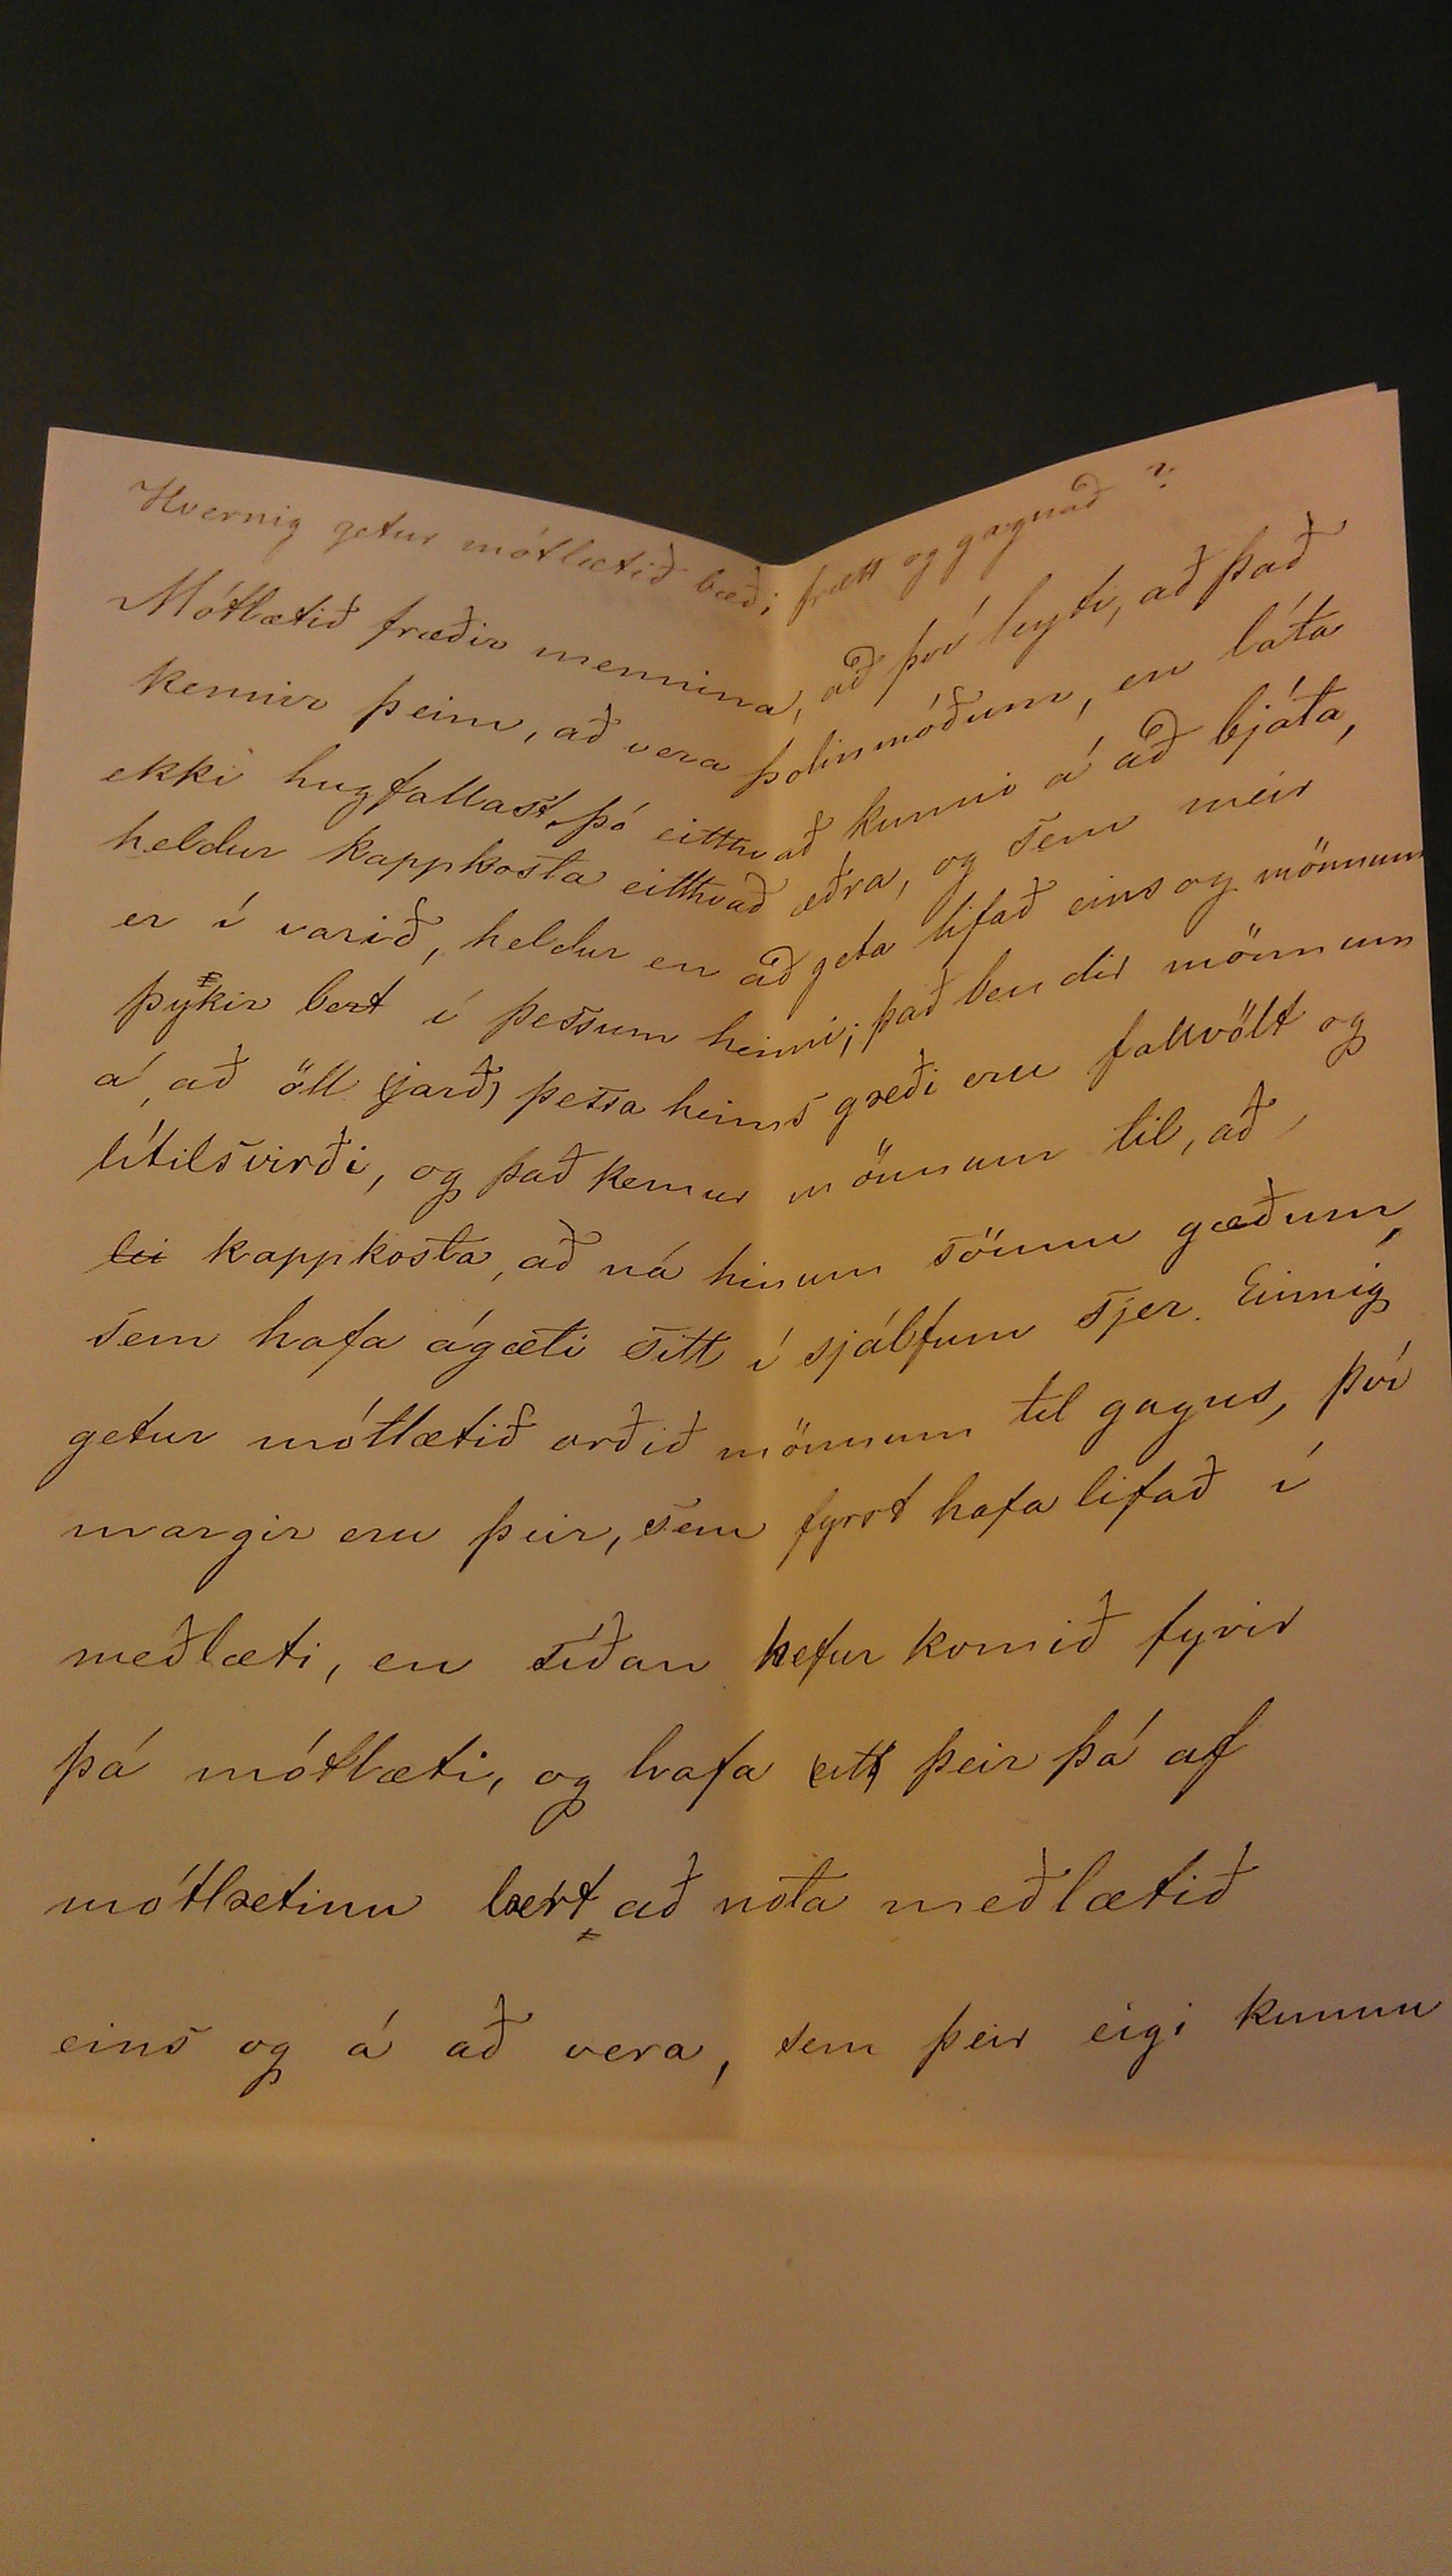 Hvernig getur mótlætið bæði frætt og gagnað?
Mótlætið fræðir mennina, að því leyti, að það
kennir þeim, að vera þolinmóðum, en láta
ekki hugfallast, þó eitthvað kunni á að bjáta,
heldur kappkosta eitthvað æðra, og sem meir
er í varið, heldur en að geta lifað eins og mönnum
þykir bezt í þessum heimi; það bendir mönnum
á, að öll (jarð) þessa heims gæði eru fallvölt og
lítilsvirði, og það kemur mönnum til, að
lei kappkosta, að ná hinum sönnu gæðum,
sem hafa ágæti sitt í sjálfum sjer. Einnig
getur mótlætið orðið mönnum til gagns, því
margir eru þeir, sem fyrst hafa lifað í
meðlæti, en síðan hefur komið fyrir
þá mótlæti, og hafa (ett) þeir þá af
mótlætinu lært að nota meðlætið
eins og á að vera, sem þeir eigi kunnu